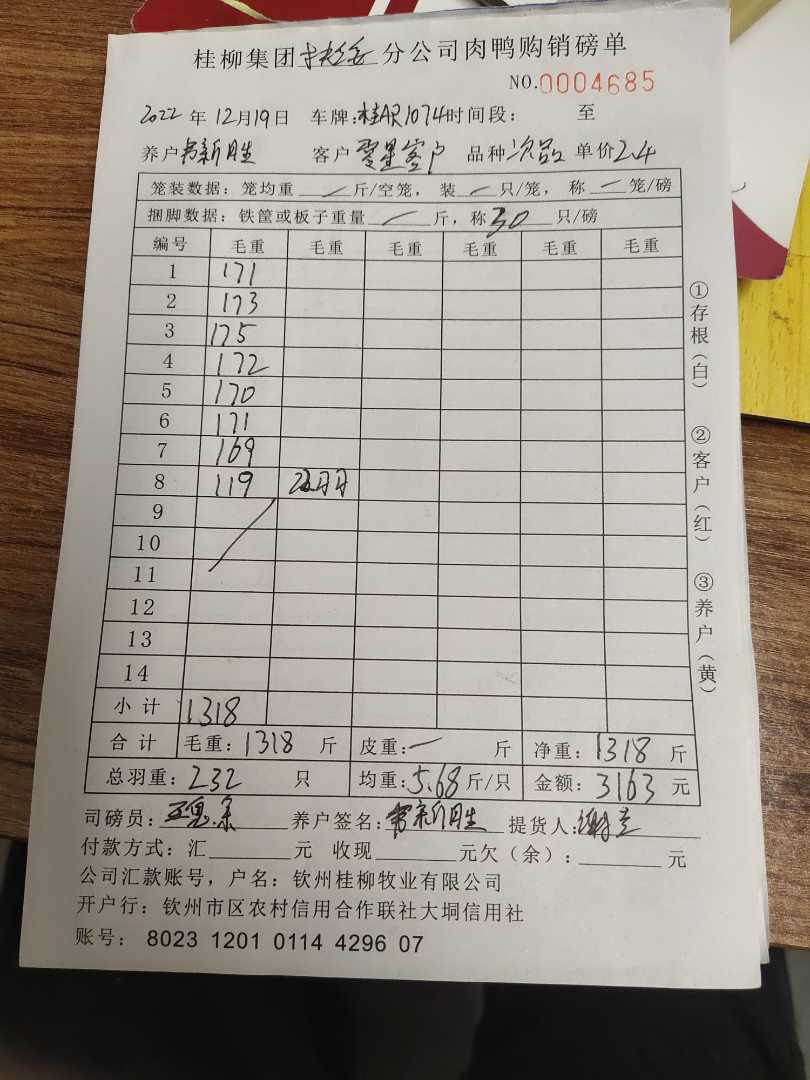 桂柳集团扶绥分公司肉鸭购销磅单
NO.0004685
2022年12月19日 车牌:桂AR1074时间段: 至
养户 新胜 客户 零星客户 品种 次品 单价2.4
笼装数据:笼均重 / 斤/空笼,装 一 只/笼,称 一 笼/磅
捆脚数据:铁筐或板子重量 / 斤,称30只/磅
编号 毛重 毛重 毛重 毛重 毛重 毛重
1 171
2 173
3 175
4 172
5 170
6 171
7 169
8 119
9
10
11
12
13
14
小计 1318
合计 毛重:1318斤 皮重:一 斤 净重:1318斤
总羽重:232只 均重:5.68斤/只 金额:3163元
司磅员: 养户签名: 新胜 提货人:谢
付款方式:汇______元 收现______元欠(余):______元
公司汇款账号,户名:钦州桂柳牧业有限公司
开户行:钦州市区农村信用合作联社大垌信用社
账号: 8023 1201 0114 4296 07
①存根(白) ②客户(红) ③养户(黄)